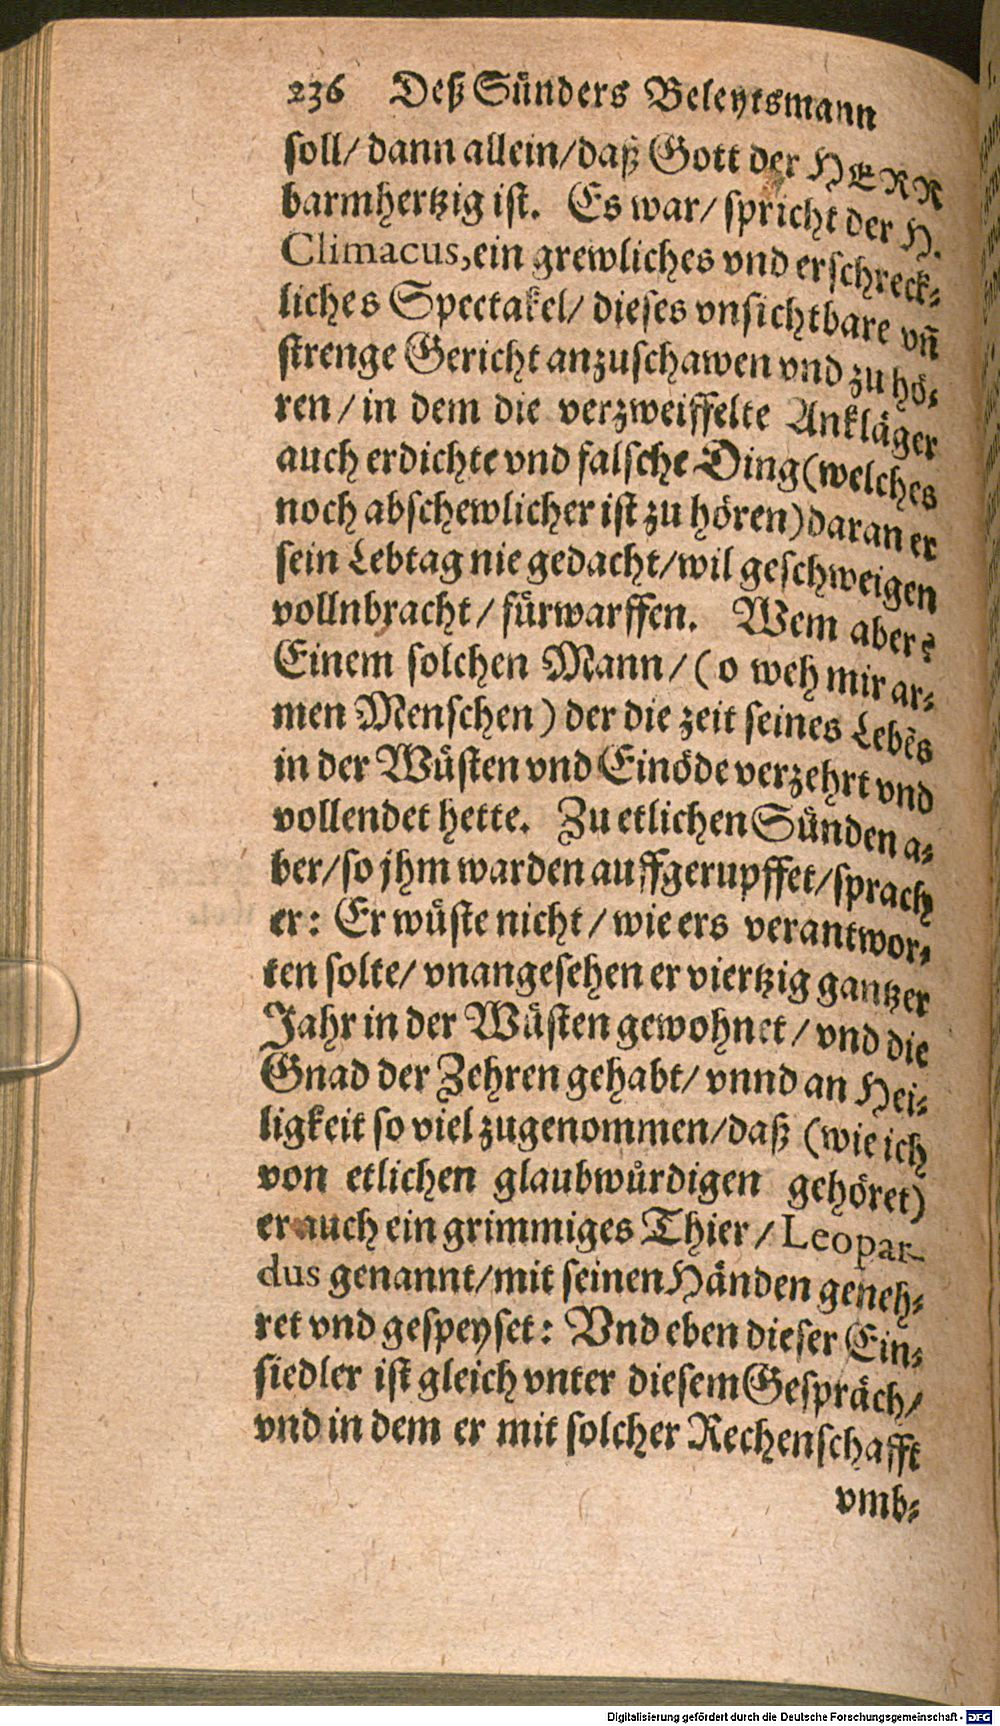 236 Deß Sünders Beleytsmann
soll/ dann allein/daß Gott der HERR
barmhertzig ist. Es war/ spricht der H.
Climacus, ein grewliches vnd erschreck-
liches Spectakel/ dieses vnsichtbare vñ
strenge Gericht anzuschawen vnd zu hö-
ren/in dem die verzweiffelte Ankläger
auch erdichte vnd falsche Ding (welches
noch abschewlicher ist zu hören) daran er
sein Lebtag nie gedacht/wil geschweigen
vollnbracht/ fürwarffen. Wem aber?
Einem solchen Mann/ (o weh mir ar-
men Menschen) der die zeit seines Lebẽs
in der Wüsten vnd Einöde verzehrt vnd
vollendet hette. Zu etlichen Sünden a-
ber/so jhm warden auffgerupffet/sprach
er: Er wüste nicht/ wie ers verantwor-
ten solte/ vnangesehen er viertzig gantzer
Jahr in der Wüsten gewohnet/ vnd die
Gnad der Zehren gehabt/ vnnd an Hei-
ligkeit so viel zugenommen/daß (wie ich
von etlichen glaubwürdigen gehöret)
er auch ein grimmiges Thier/ Leopar-
dus genannt/mit seinen Händen geneh-
ret vnd gespeyset: Vnd eben dieser Ein-
siedler ist gleich vnter diesem Gespräch/
vnd in dem er mit solcher Rechenschafft
vmb-
Digitalisierung gefördert durch die Deutsche Forschungsgemeinschaft - DFG